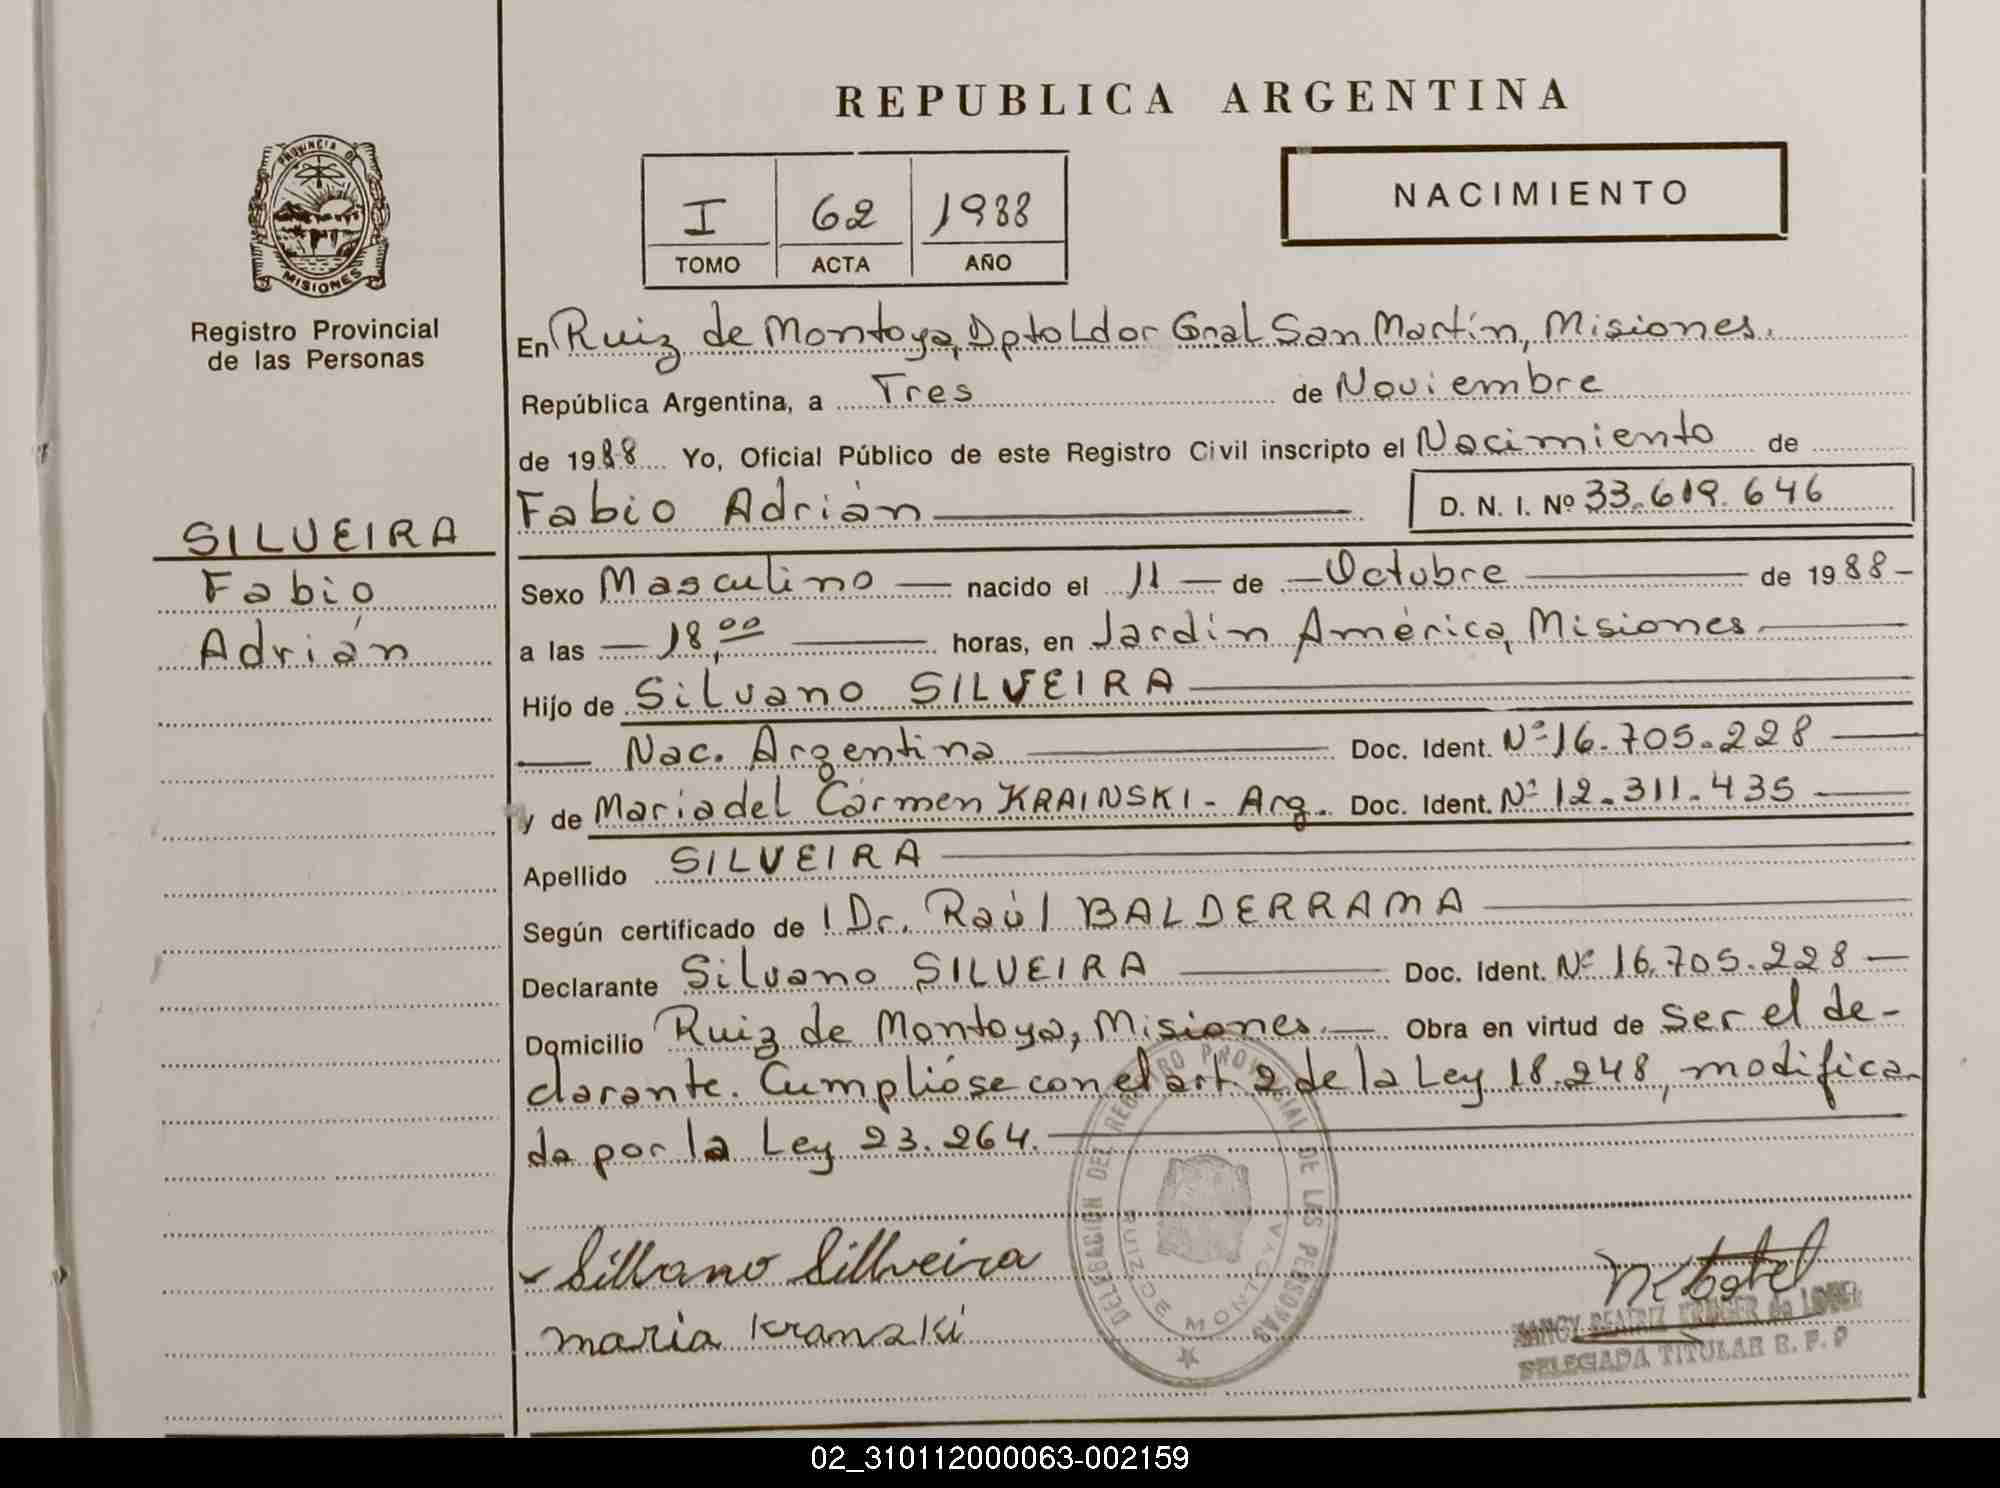 REPUBLICA ARGENTINA
PROVINCIA DE
MISIONES
Registro Provincial
de las Personas
I 62 1988
TOMO ACTA AÑO
NACIMIENTO
En Ruiz de Montoya, Dpto Ldor Gral San Martín, Misiones.
República Argentina, a Tres de Noviembre
de 1988 Yo, Oficial Público de este Registro Civil inscripto el Nacimiento de
Fabio Adrián D. N. I. Nº 33.619.646
SILVEIRA
Fabio
Adrián
Sexo Masculino nacido el 11 de Octubre de 1988
a las 18,00 horas, en Jardín América, Misiones
Hijo de Silvano SILVEIRA
Nac. Argentina Doc. Ident. Nº 16.705.228
y de María del Cármen KRAINSKI - Arg. Doc. Ident. Nº 12.311.435
Apellido SILVEIRA
Según certificado de Dr. Raúl BALDERRAMA
Declarante Silvano SILVEIRA Doc. Ident. Nº 16.705.228
Domicilio Ruiz de Montoya, Misiones. Obra en virtud de ser el de-
clarante. Cumplióse con el art. 2 de la Ley 18.248, modifica-
da por la Ley 23.264.
Sillvano Sillveira
maria Kranzki
DELEGACION DEL REGISTRO PROVINCIAL DE LAS PERSONAS
RUIZ DE MONTOYA
NANCY BEATRIZ de
DELEGADA TITULAR R. P. P
02_310112000063-002159